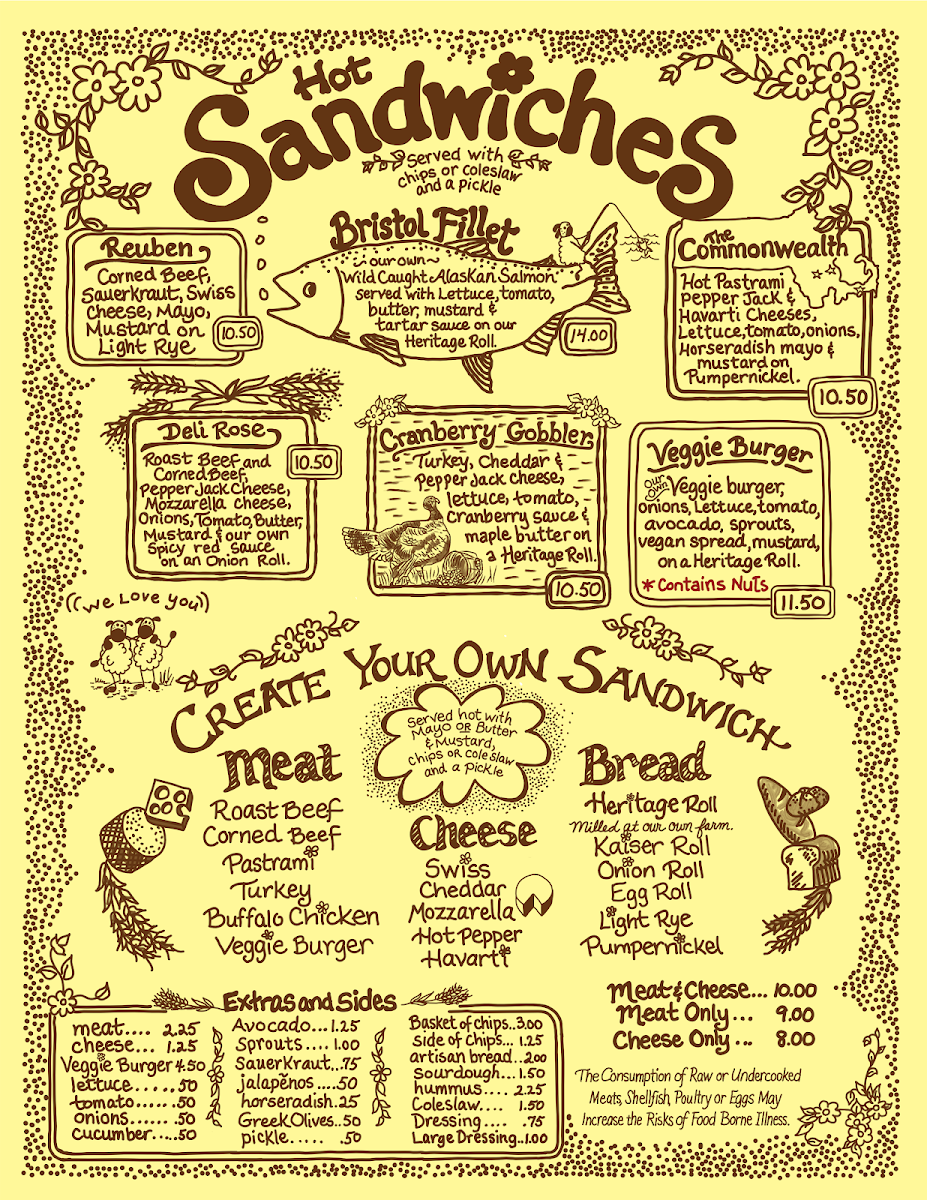 Hot
Sandwiches
Served with
chips or coleslaw
and a pickle
Reuben
Corned Beef,
Sauerkraut, Swiss
Cheese, Mayo,
Mustard on
Light Rye
10.50
Bristol Fillet
~our own~
Wild Caught Alaskan Salmon
served with Lettuce, tomato,
butter, mustard &
tartar sauce on our
Heritage Roll.
14.00
The
Commonwealth
Hot Pastrami
Pepper Jack &
Havarti Cheeses,
Lettuce, tomato, onions,
Horseradish mayo &
mustard on
Pumpernickel.
10.50
Deli Rose
Roast Beef and
Corned Beef,
Pepper Jack Cheese,
Mozzarella Cheese,
Onions, Tomato, Butter,
Mustard & our own
Spicy red sauce
on an Onion Roll.
10.50
Cranberry Gobbler
Turkey, Cheddar &
Pepper Jack Cheese,
lettuce, tomato,
Cranberry sauce &
maple butter on
a Heritage Roll.
10.50
Veggie Burger
Our Own Veggie burger,
onions, Lettuce, tomato,
avocado, sprouts,
vegan spread, mustard,
on a Heritage Roll.
* Contains Nuts
11.50
((We Love you))
Create Your Own Sandwich
Served hot with
Mayo OR Butter
& Mustard,
chips OR cole slaw
and a pickle
Meat
Roast Beef
Corned Beef
Pastrami
Turkey
Buffalo Chicken
Veggie Burger
Cheese
Swiss
Cheddar
Mozzarella
Hot Pepper
Havarti
Bread
Heritage Roll
Milled at our own farm.
Kaiser Roll
Onion Roll
Egg Roll
Light Rye
Pumpernickel
Meat & Cheese... 10.00
Meat Only... 9.00
Cheese Only... 8.00
Extras and Sides
meat.... 2.25
cheese... 1.25
Veggie Burger 4.50
lettuce.....50
tomato.....50
onions.....50
cucumber....50
Avocado...1.25
Sprouts.... 1.00
Sauerkraut...75
jalapeños....50
horseradish.25
Greek Olives..50
pickle..... .50
Basket of chips..3.00
side of chips... 1.25
artisan bread..2.00
sourdough...1.50
hummus.... 2.25
Coleslaw.... 1.50
Dressing.... .75
Large Dressing..1.00
The Consumption of Raw or Undercooked
Meats, Shellfish, Poultry or Eggs May
Increase the Risks of Food Borne Illness.